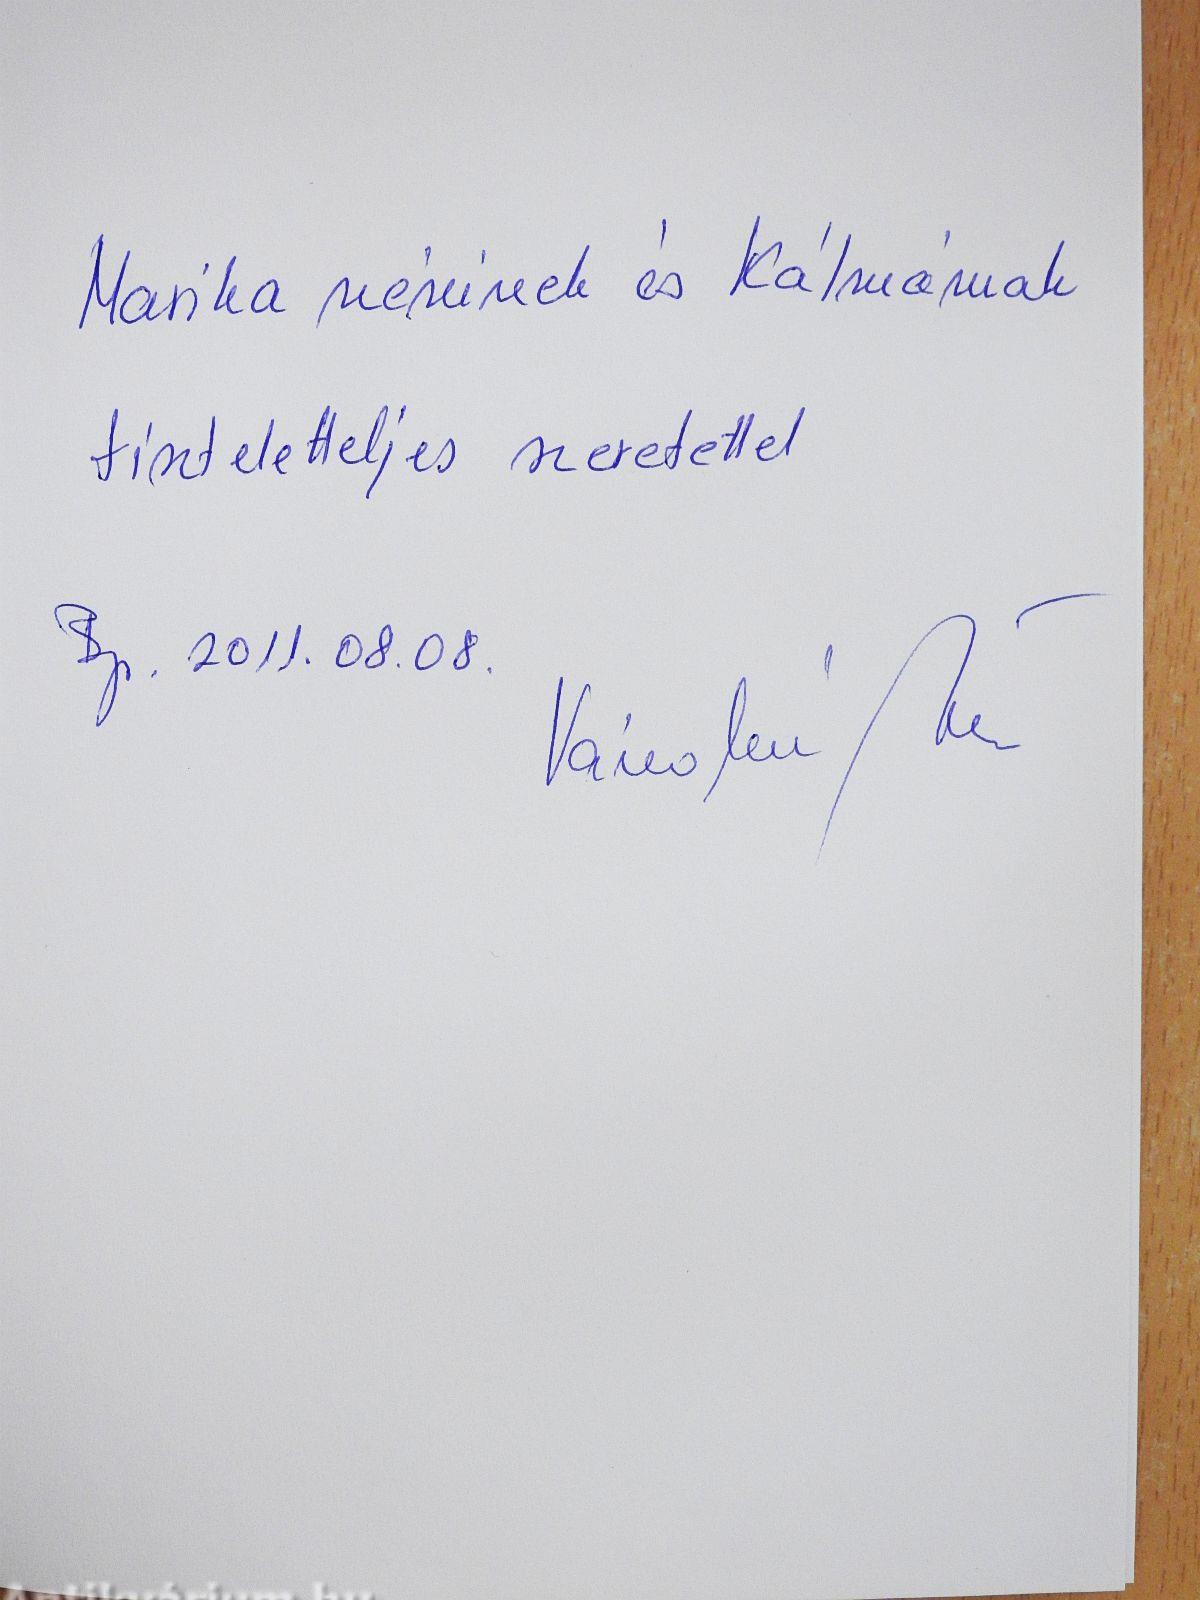 Marika néninek és Kálmánnak
tiszteletteljes szeretettel
Bp. 2011.08.08.
Antikvárium.hu